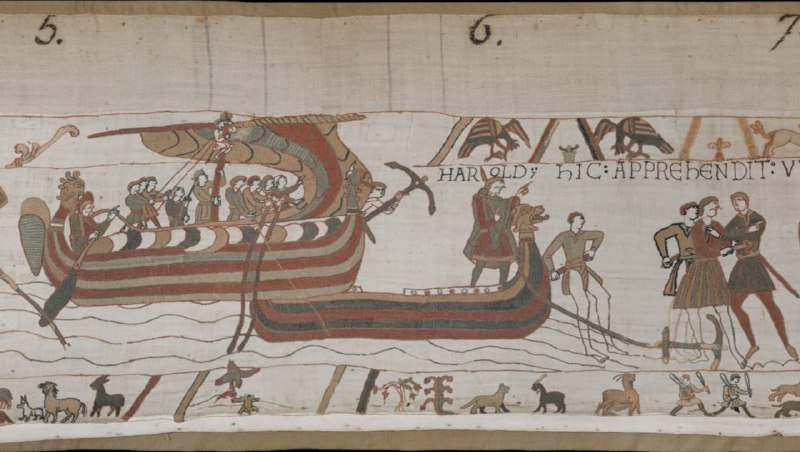 5. 6. 7
HAROLD; hIC: APPREhENDIT: V